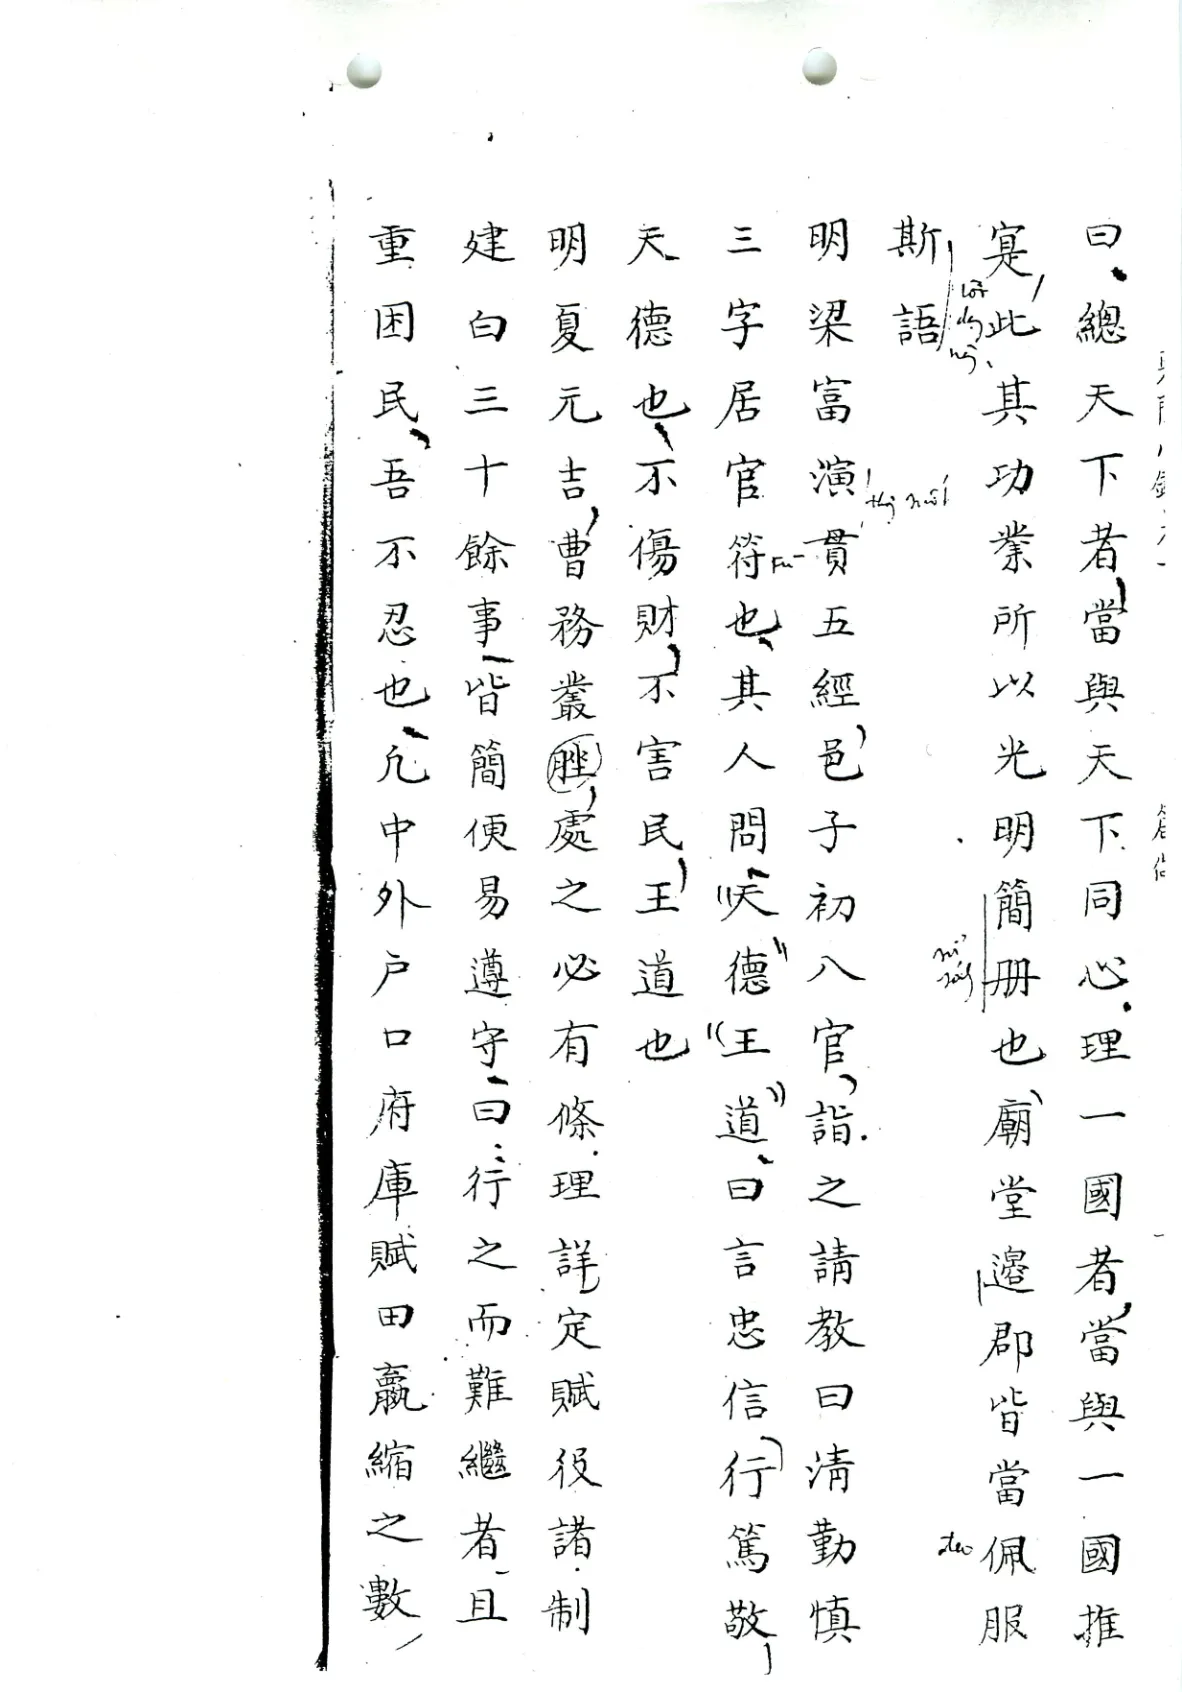 曰總天下者當與天下同心理一國者當與一國推
寔此其功業所以光明簡册也廟堂邉郡皆當佩服
斯語
明梁富演貫五經邑子初八官詣之請教曰清勤慎
三字居官符也其人問天德王道曰言忠信行篤敬
天德也不傷財不害民王道也
明夏元吉曹務叢脞處之必有條理詳定賦役諸制
建白三十餘事皆簡便易遵守曰行之而難繼者且
重困民吾不忍也凢中外户口府庫賦田贏縮之數
Fu
đeo